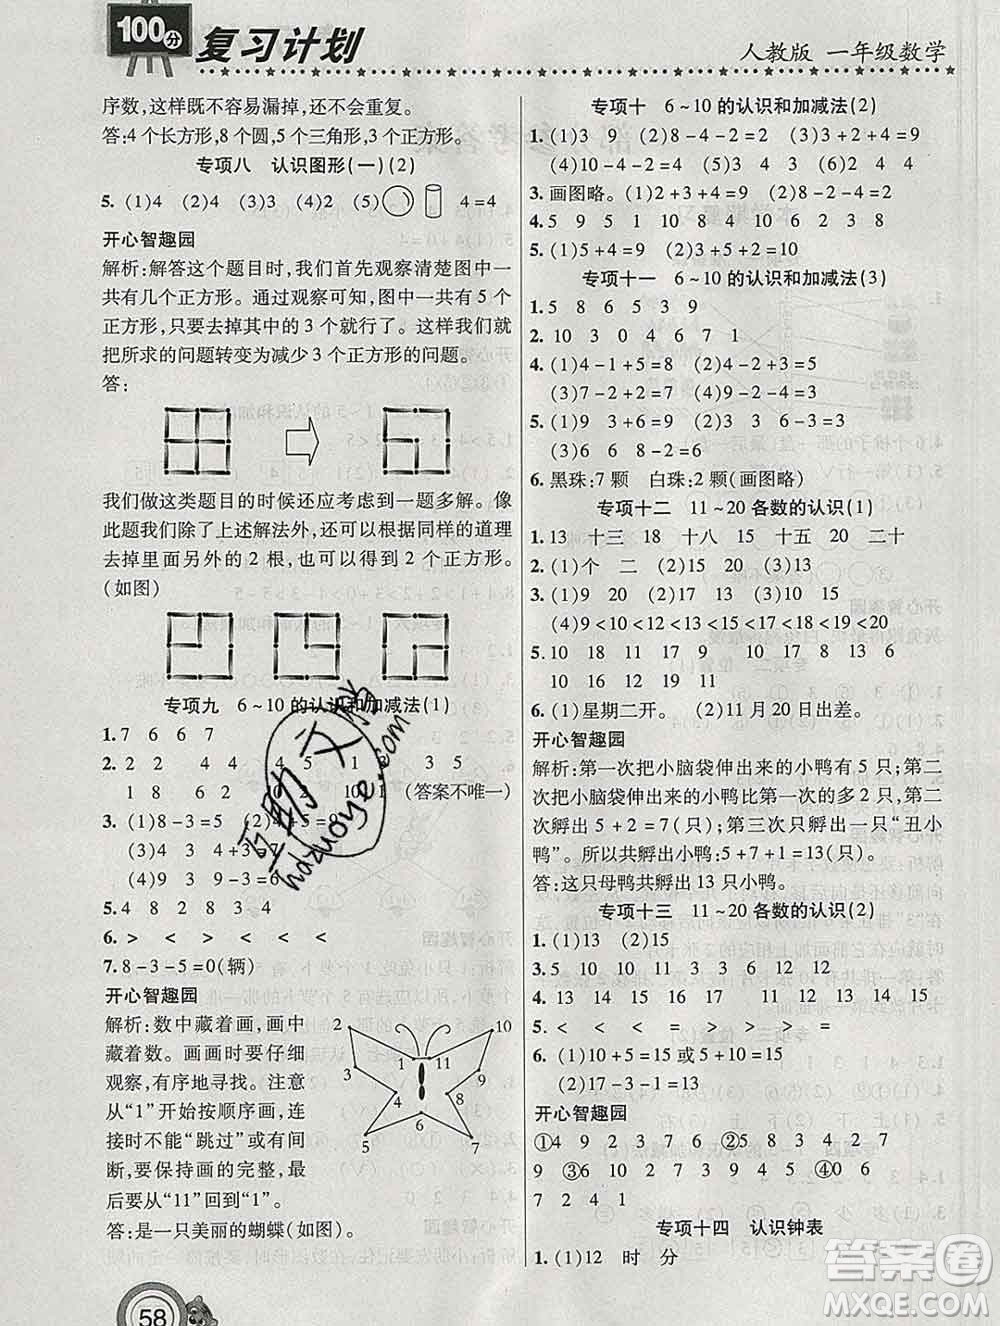 100分 复习计划
人教版 一年级数学
序数,这样既不容易漏掉,还不会重复。
答:4个长方形,8个圆,5个三角形,3个正方形。
专项八 认识图形(一)(2)
5. (1)4 (2)4 (3)3 (4)2 (5) 4=4
开心智趣园
解析:解答这个题目时,我们首先观察清楚图中一
共有几个正方形。通过观察可知,图中一共有5个
正方形,只要去掉其中的3个就行了。这样我们就
把所求的问题转变为减少3个正方形的问题。
答:
我们做这类题目的时候还应考虑到一题多解。像
此题我们除了上述解法外,还可以根据同样的道理
去掉里面另外的2根,也可以得到2个正方形。
(如图)
专项九 6~10的认识和加减法(1)
1. 7 6 6 7
2. 2 2 4 4 4 5 1 3 5
1 8 6 2 0 2 10 1 (答案不唯一)
3. (1)8-3=5 (2)4+5=9
(3)4 3 4 4+3=7
(4)9 3 9-3=6
5. 4 8 2 8 3 4
6. > > < < < <
7. 8-3-5=0(辆)
开心智趣园
解析:数中藏着画,画中
藏着数。画画时要仔细
观察,有序地寻找。注意
从“1”开始按顺序画,连
接时不能“跳过”或有间
断,要保持画的完整,最
后要从“11”回到“1”。
2 10
1 11
3 9
4 8
6
5 7
答:是一只美丽的蝴蝶(如图)。
58
专项十 6~10的认识和加减法(2)
1. (1)3 9 (2)8-4-2=2 (3)2+3+4=9
(4)10-4-2=4 (5)3 4 3 4
3. 画图略。(1)2+3+4=9 (2)9-4-3=2
4. 5 9 5 10 8 9 10 6 2 3 8
5. (1)5+4=9 (2)2+6+2=10
专项十一 6~10的认识和加减法(3)
1. 5 8 6 5 3 9
2. 10 3 0 4 6 7 1
4. (1)4-1+5=8 (2)4-2+3=5
(3)7-4+2=5 (4)9-2-4=3
5. (1)6 3 9 (2)9 3 6
(3)6 6 8-6=2
6. 黑珠:7颗 白珠:2颗(画图略)
专项十二 11~20各数的认识(1)
1. 13 十三 18 十八 15 十五 20 二十
2. (1)个 二 (2)15 20 (3)13
4. (1)9 10 (2)19 17 (3)15 20
(4)9<10<11<12<15<17<18<19<20
5. 10 18 17 9 14 20 17 15 13
10 16 12 11 20 19
6. (1)星期二开。 (2)11月20日出差。
开心智趣园
解析:第一次把小脑袋伸出来的小鸭有5只;第二
次把小脑袋伸出来的小鸭比第一次的多2只,第二
次孵出5+2=7(只);第三次只孵出一只“丑小
鸭”。所以共孵出小鸭:5+7+1=13(只)。
答:这只母鸭共孵出13只小鸭。
专项十三 11~20各数的认识(2)
1. (1)13 (2)15
3. 5 5 10 10 5 10 10 10 5 10
4. 13 15 17 18 14 12 13 14 15 17
5. < < < = > > > <
6. (1)10+5=15或5+10=15
(2)17-10=7
开心智趣园
①4 9 2 3 7 6 ②5 8 3 4 2 7
9 ③6 10 2 7 9 3 5 ④0 6
7 2 4 1
专项十四 认识钟表
1. (1)12 时 分
互助文形
hdzuoye.com
答案圈
MXQE.COM